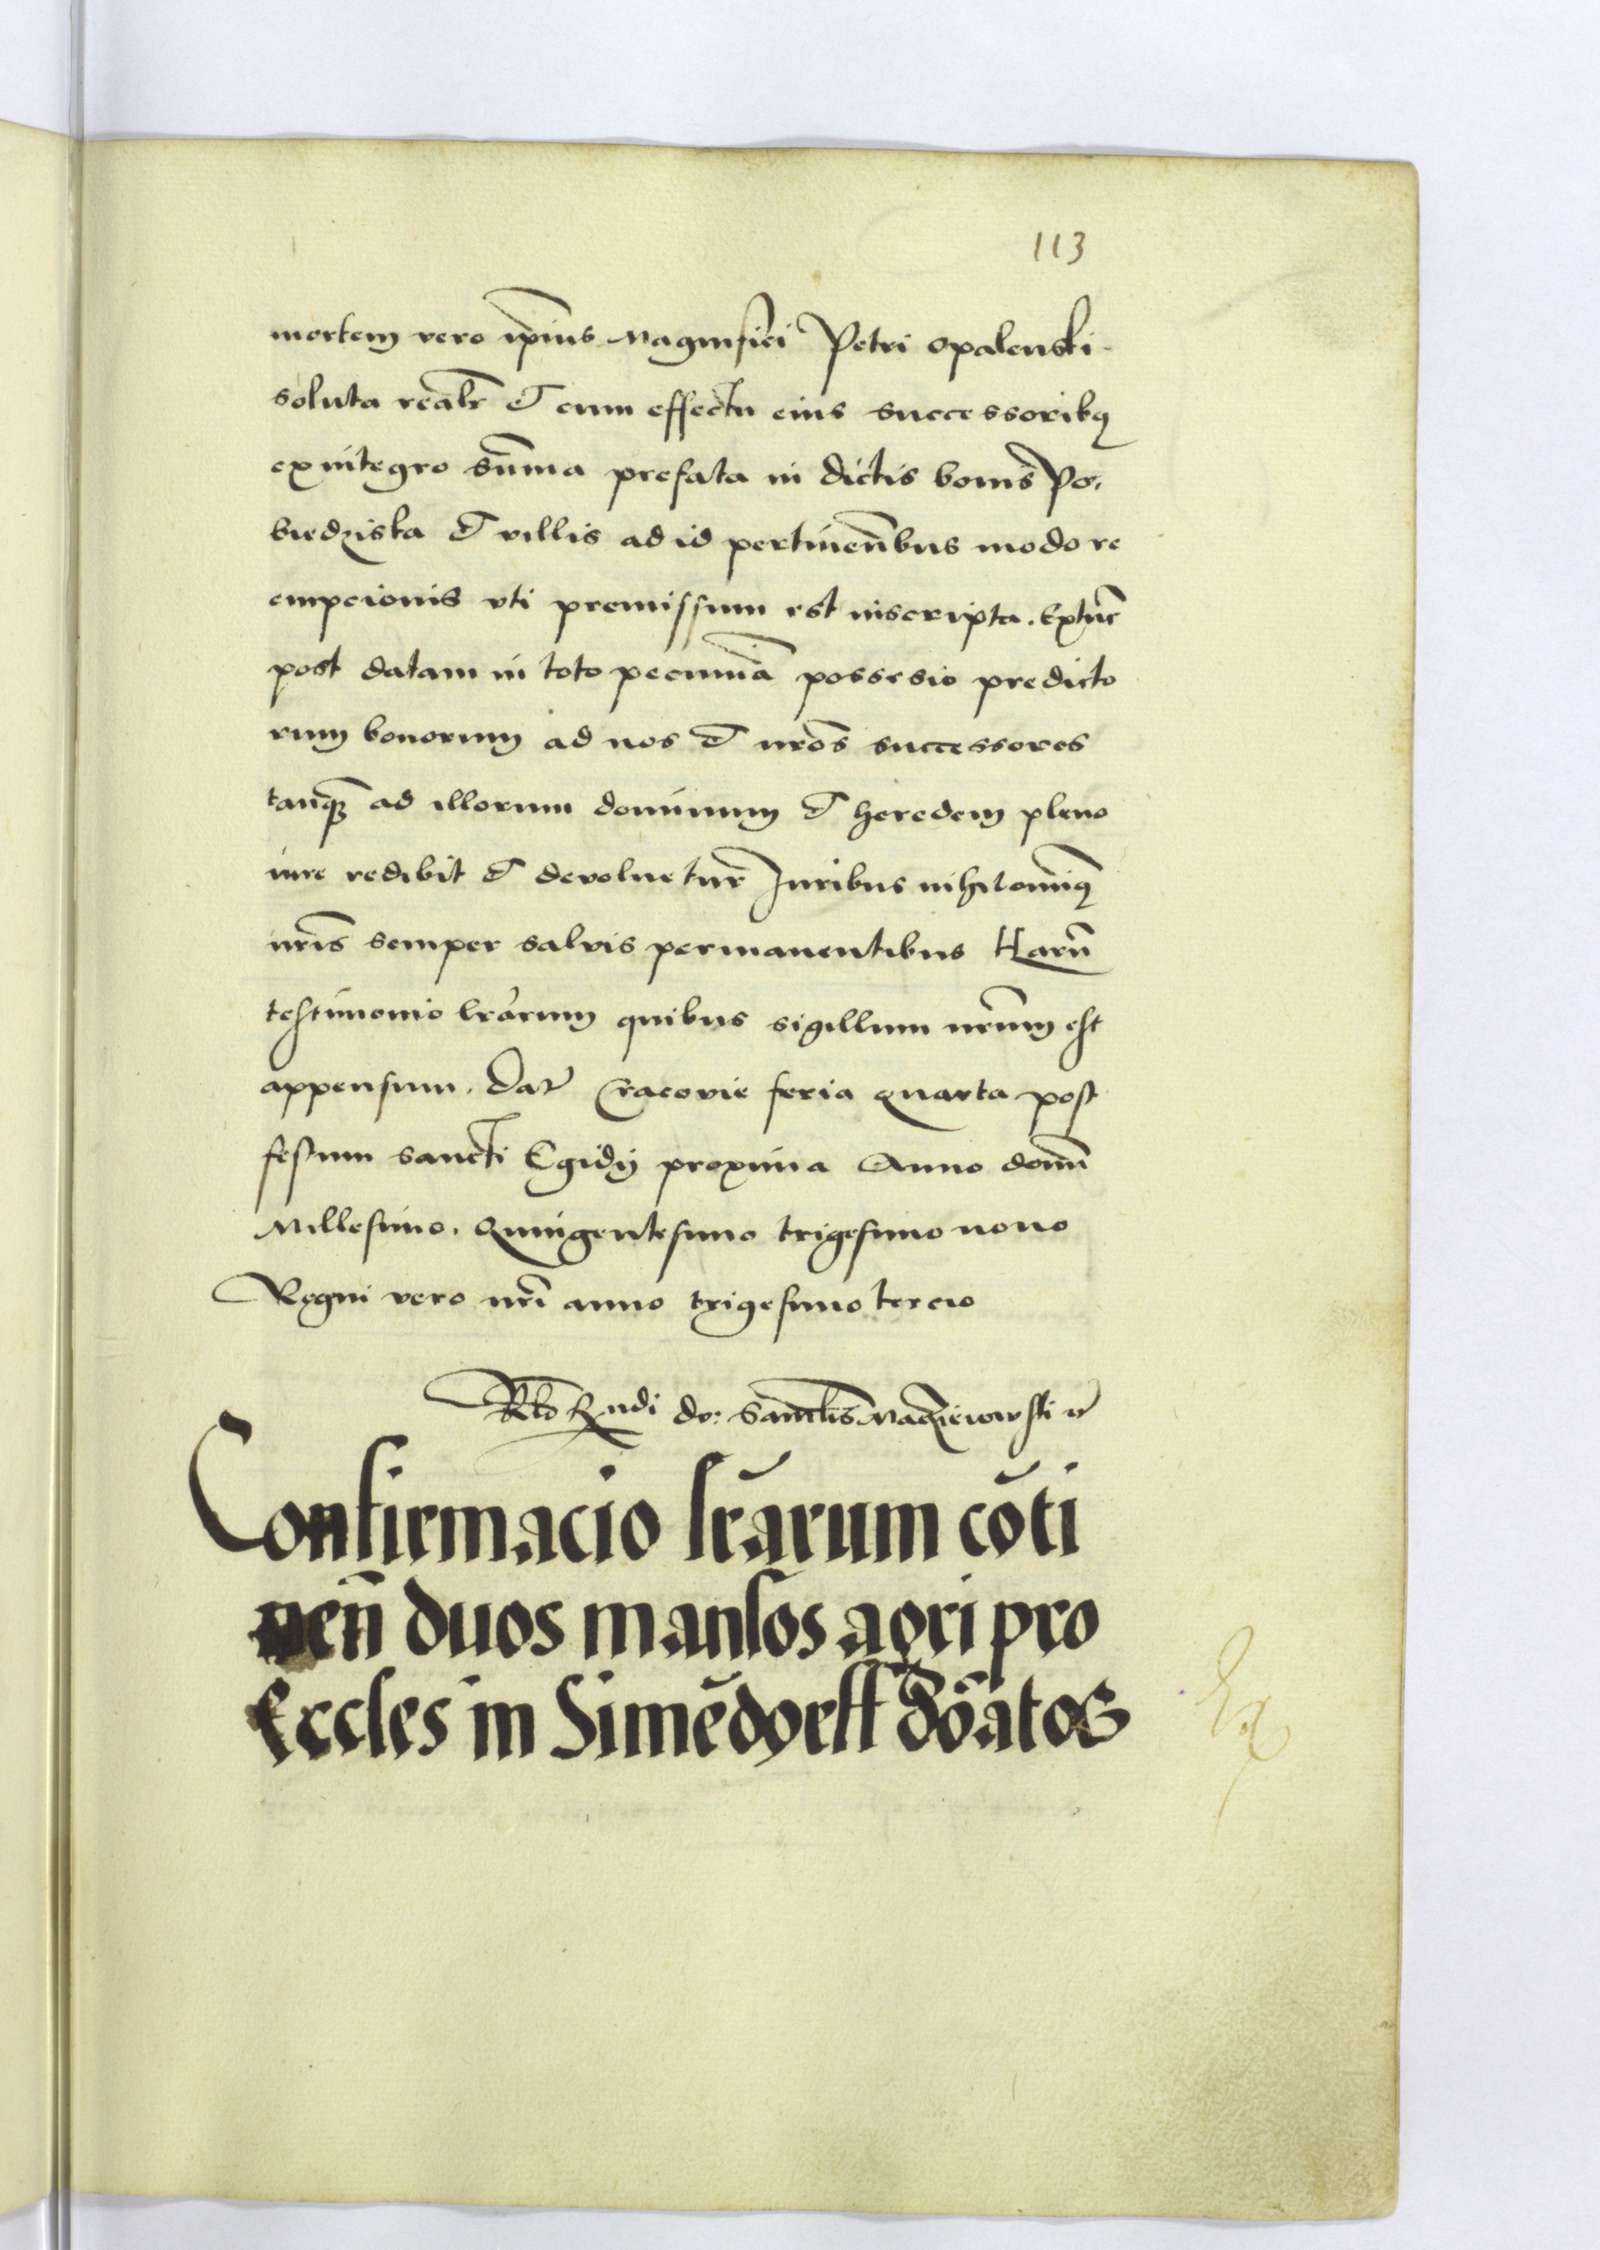 113
mortem vero ip̄ius Magnifici Petri Opalenski
soluta realr̄ et cum effectu eius successoribq
exintegro sum̄a prefata in dictis bonis Po,
biedziska et villis ad id pertinen̄bus modo re
empcionis vti premissum est inscripta. Extunc̄
post datam in toto pecuniā possesio predicto
rum bonorum ad nos et nros̄ successores
tanq̄ ad illorum dominum et heredem pleno
iure redibit et devoluetur Iuribus nihilomiq̄
nris̄ semper salvis permanentibus Harū
testimonio lrārum quibus sigillum nrūm est
appensum. Dat̄ Cracovie feria quarta post
festum sancti Egidij proxima Anno domī
Millesimo. Quingentesimo trigesimo nono
Regni vero nrī anno trigesimo tercio
Rlō Rndi do: Samuelis Macziеiowski
Confirmacio lrārum cōti
nen̄ duos mansos agri pro
Eccles in Simēdorff dōatos